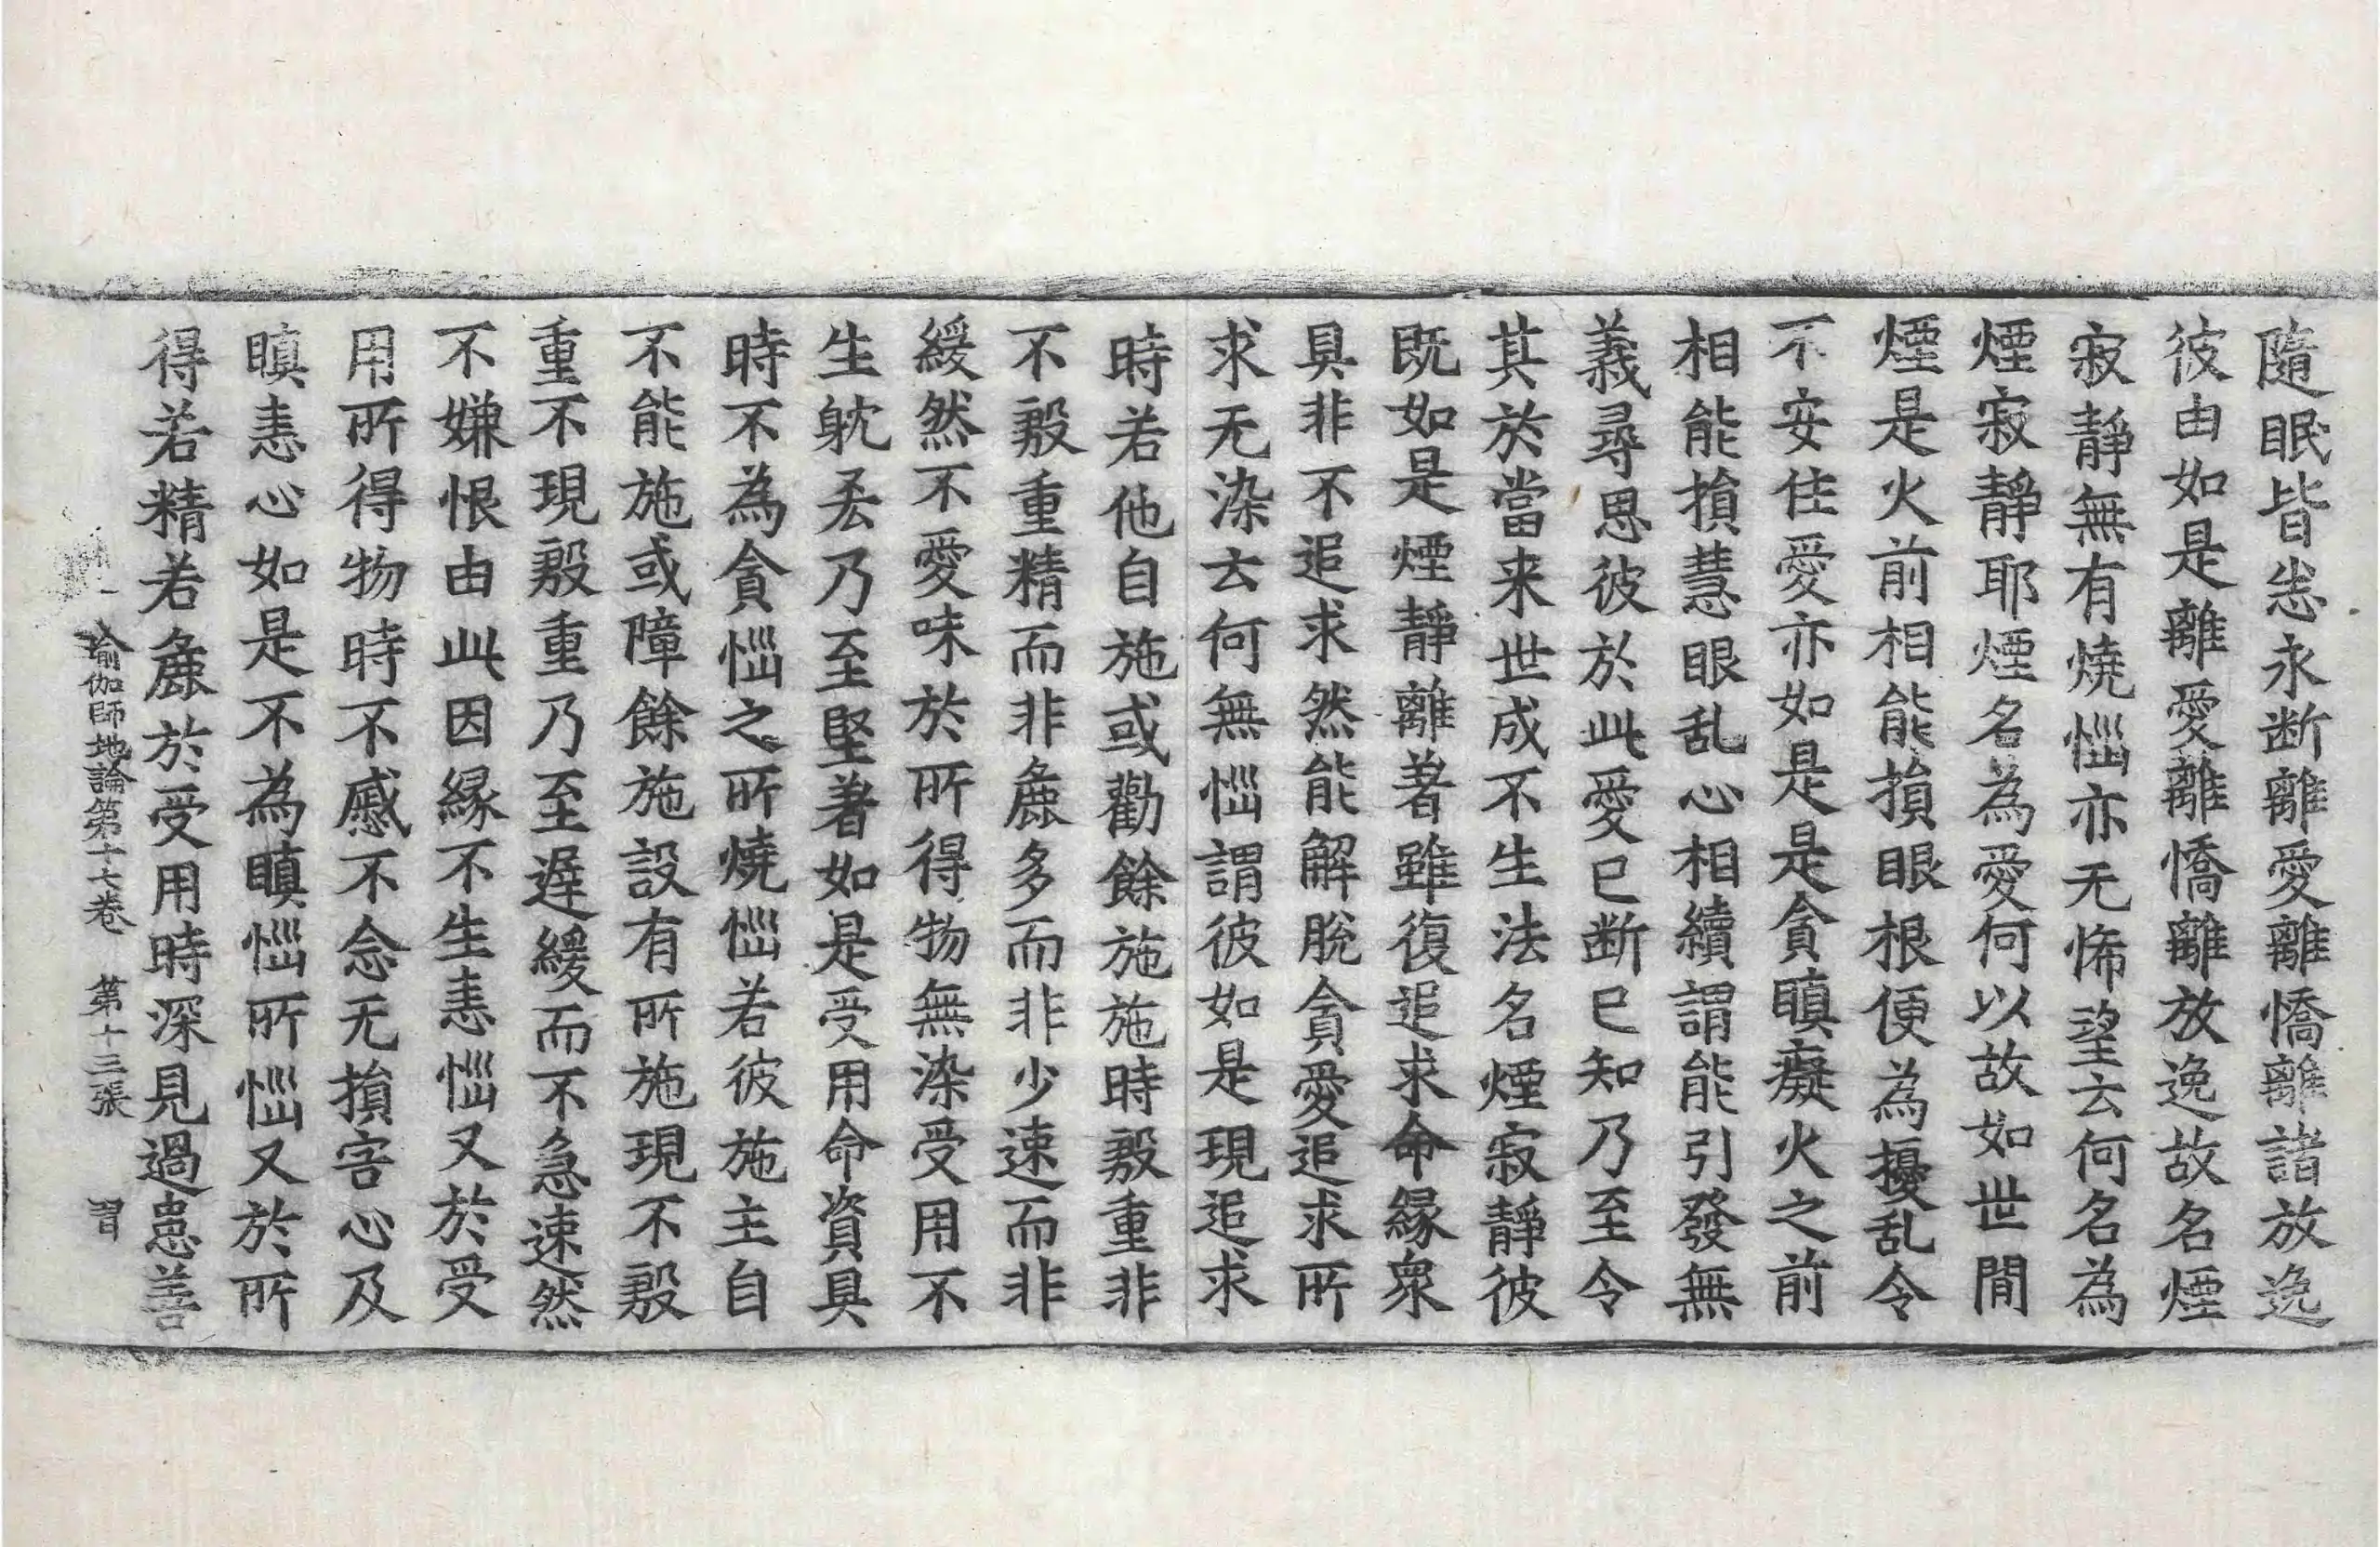 隨眠皆恙永断離愛離憍離諸放逸
彼由如是離愛離憍離放逸故名煙
寂静無有燒㤙亦无怖望云何名為
煙寂静耶煙名為愛何以故如世間
煙是火前相能損眼根便為擾乱令
不安住愛亦如是是貪瞋癡火之前
相能損慧眼乱心相續謂能引發無
義尋思彼於此愛已断已知乃至令
其於當来世成不生法名煙寂静彼
既如是煙静離著雖復追求命縁衆
具非不追求然能解脫貪愛追求所
求无染云何無㤙謂彼如是現追求
時若他自施或勸餘施施時殷重非
不殷重精而非麁多而非少速而非
緩然不愛味於所得物無染受用不
生躭著乃至堅著如是受用命資具
時不為貪㤙之所燒㤙若彼施主自
不能施或障餘施設有所施現不殷
重不現殷重乃至遅緩而不急速然
不嫌恨由此因縁不生恚㤙又於受
用所得物時不慼不念无損害心及
瞋恚心如是不為瞋㤙所㤙又於所
得若精若麁於受用時深見過患善
瑜伽師地論第十七卷 第十三張 習